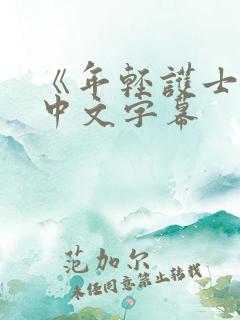 《年轻護士
中文字幕
范加尔
未经同意禁止转载